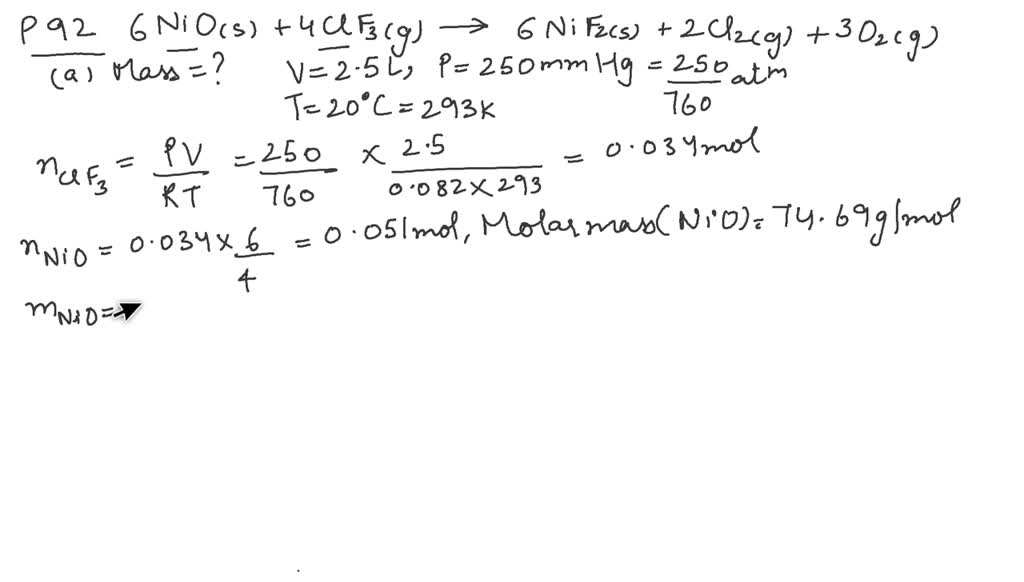 P92 6NiO(s) + 4ClF3(g) → 6NiF2(s) + 2Cl2(g) + 3O2(g)
(a) Mass = ? V = 2.5L, P = 250mmHg = 250/760 atm
T = 20°C = 293K
nClF3 = PV/RT = 250/760 × 2.5/0.082×293 = 0.034mol
nNiO = 0.034 × 6/4 = 0.051mol, Molar mass(NiO) = 74.69g/mol
mNiO =